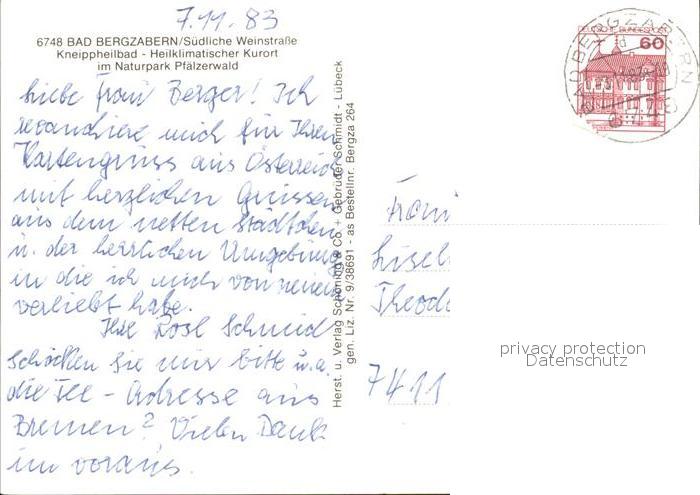 7.11.83
6748 BAD BERGZABERN/Südliche Weinstraße
Kneippheilbad - Heilklimatischer Kurort
im Naturpark Pfälzerwald
Liebe Frau Berger! Ich
revanchiere mich für Ihren
Kartengruss aus Österreich
mit herzlichen Grüssen
aus dem netten Städtchen
u. der herrlichen Umgebung
in die ich mich von neuem
verliebt habe.
Ihre Rosl Schmid
Schicken Sie mir bitte u.a.
die Tee - Adresse aus
Bremen? Vielen Dank
im voraus.
Herst. u. Verlag Schöning & Co. + Gebrüder Schmidt - Lübeck
gen. Liz. Nr. 9/38691 - as Bestellnr. Bergza 264
DEUTSCHE BUNDESPOST
60
BAD BERGZABERN
Frau
Lisel
Theod
7411
privacy protection
Datenschutz